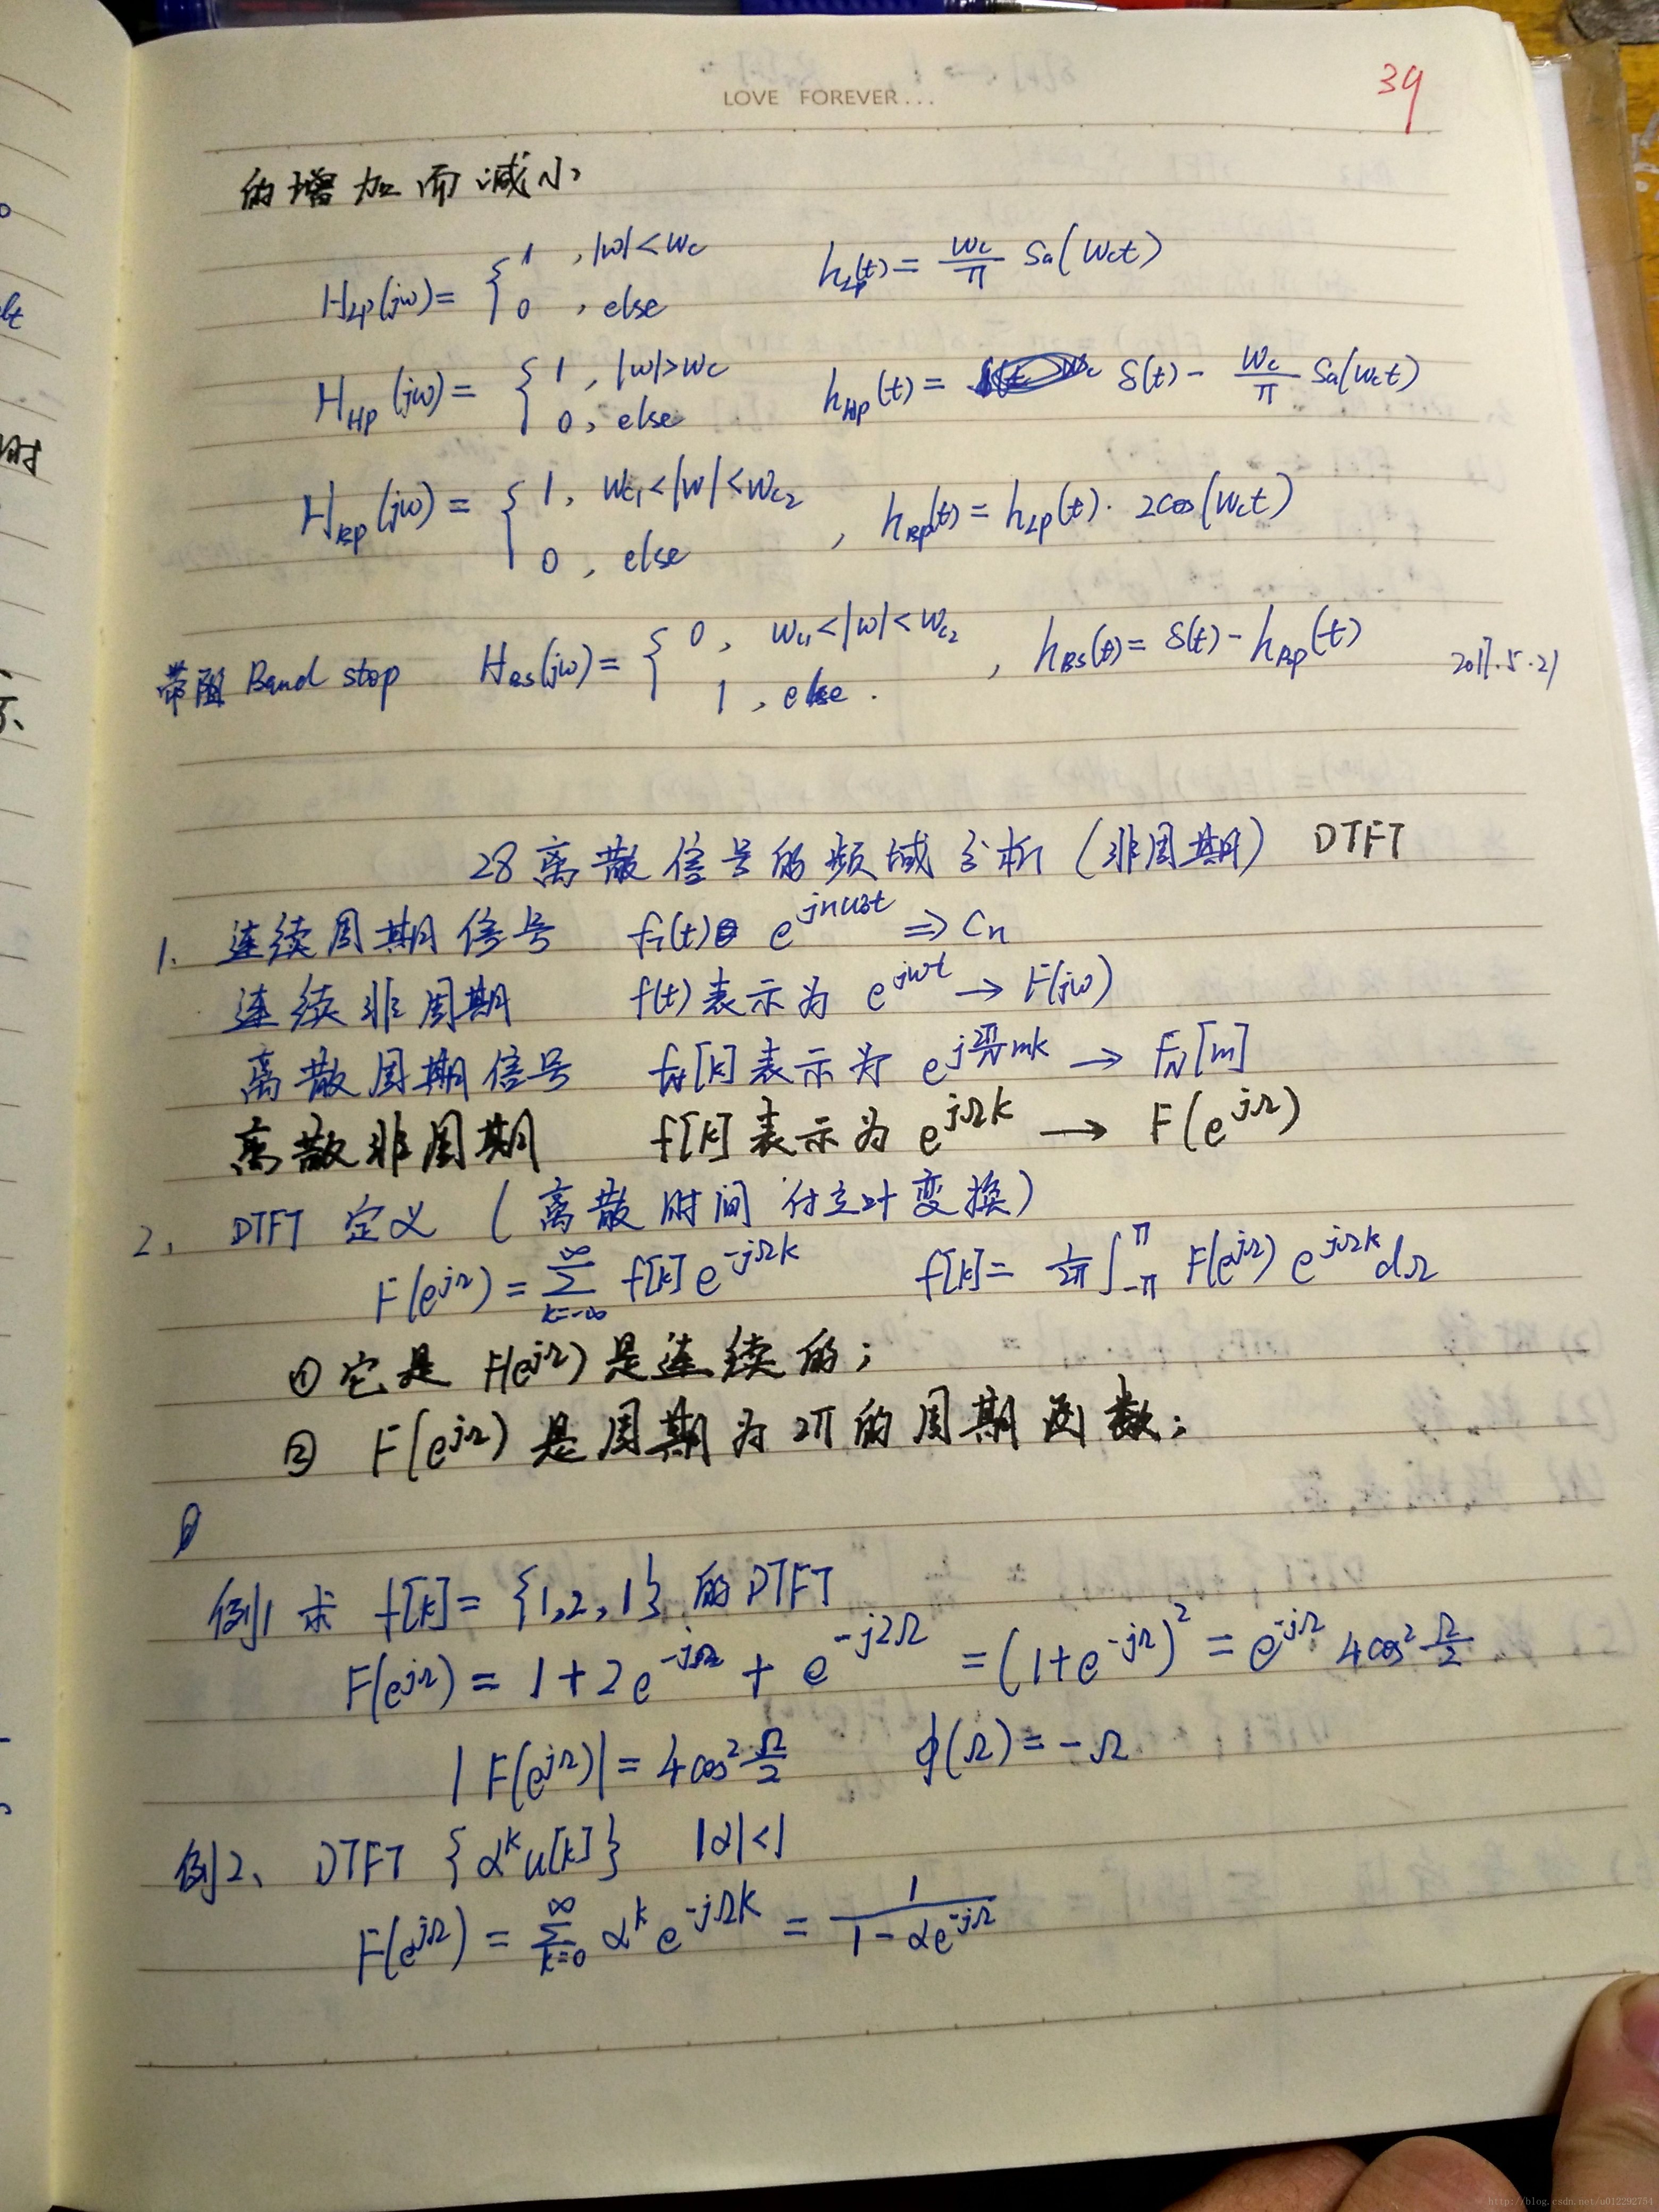 LOVE FOREVER...
39
的增加而减小
H_LP(jω)= { 1 , |ω|<ωc ; 0 , else    h_LP(t)= ωc/π Sa(ωct)
H_HP(jω)= { 1 , |ω|>ωc ; 0 , else    h_HP(t)= δ(t)- ωc/π Sa(ωct)
H_BP(jω)= { 1 , ωc1<|ω|<ωc2 ; 0 , else , h_BP(t)= h_LP(t)· 2cos(ωct)
带阻 Band stop H_BS(jω)= { 0 , ωc1<|ω|<ωc2 ; 1 , else . , h_BS(t)= δ(t)-h_BP(t) 2017.5.21
28 离散信号的频域分析(非周期) DTFT
1. 连续周期信号 f_T(t) e^{jnω0t} ⇒ Cn
连续非周期 f(t)表示为 e^{jωt} → F(jω)
离散周期信号 f_N[k]表示为 e^{j2π/N mk} → F_N[m]
离散非周期 f[k]表示为 e^{jΩk} → F(e^{jΩ})
2. DTFT 定义 (离散时间付立叶变换)
F(e^{jΩ})= ∑_{k=-∞}^{∞} f[k]e^{-jΩk}    f[k]= 1/2π ∫_{-π}^{π} F(e^{jΩ}) e^{jΩk}dΩ
① 它是 F(e^{jΩ})是连续的;
② F(e^{jΩ})是周期为2π的周期函数;
例1 求 f[k]= {1,2,1} 的DTFT
F(e^{jΩ})= 1+2e^{-jΩ}+ e^{-j2Ω} =(1+e^{-jΩ})²= e^{-jΩ} 4cos² Ω/2
|F(e^{jΩ})|= 4cos² Ω/2    φ(Ω)= -Ω
例2、 DTFT {α^k u[k]} |α|<1
F(e^{jΩ})= ∑_{k=0}^{∞} α^k e^{-jΩk} = 1/(1-αe^{-jΩ})
http://blog.csdn.net/u012292754